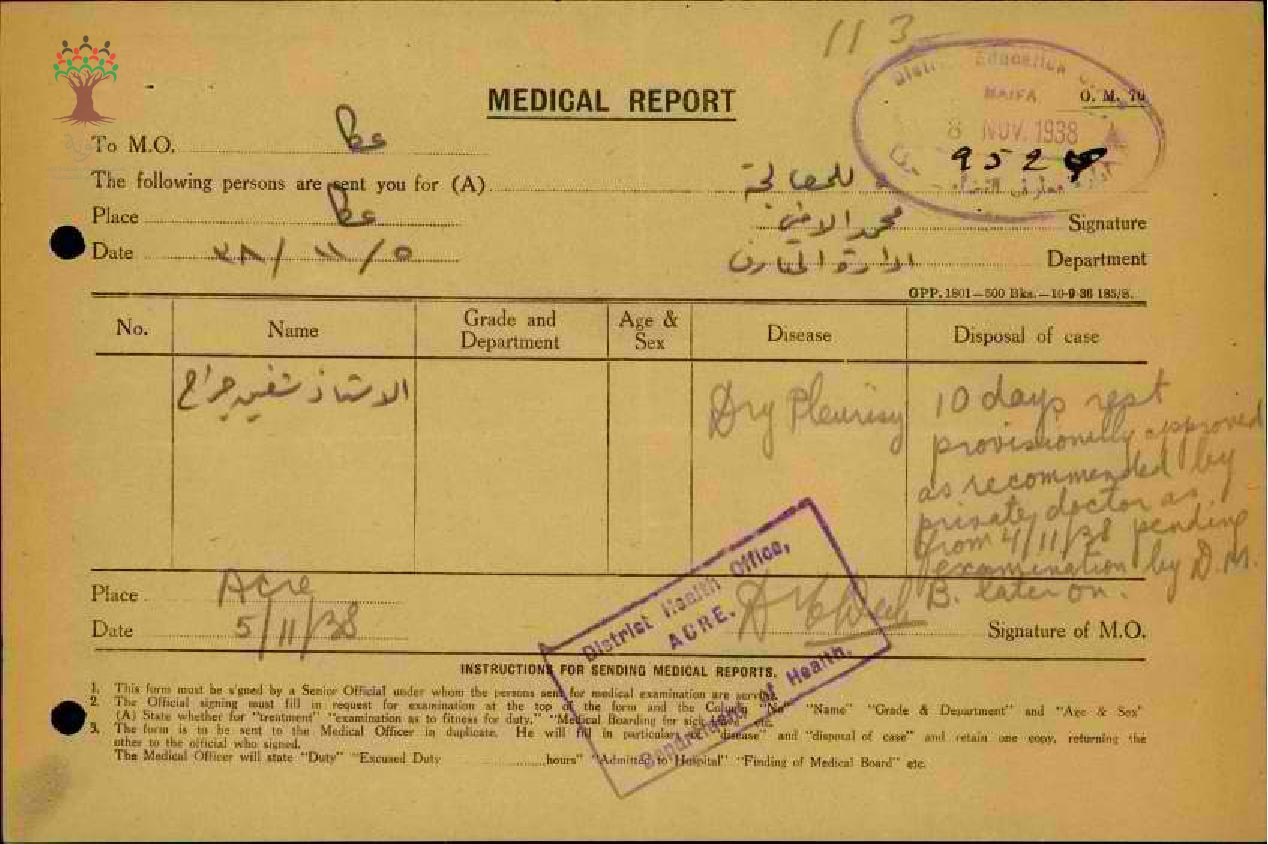 113
District Education O
HAIFA
O. M. 70
8 NOV. 1938
9524
MEDICAL REPORT
To M.O. عكا
The following persons are sent you for (A) للمعالجة
Place عكا
محمد الامين Signature
Date ٥/١١/٣٨
ادارة المعارف Department
GPP. 1801—500 Bks.—10-9-36 185/8.
No. Name Grade and Department Age & Sex Disease Disposal of case
الاستاذ شفيق جراح
Dry Pleurisy
10 days rest
provisionally approved
as recommended by
private doctor as
from 4/11/38 pending
examination by D.M.
B. later on.
Place Acre
Date 5/11/38
Signature of M.O.
District Health Office,
ACRE.
Department of Health.
INSTRUCTIONS FOR SENDING MEDICAL REPORTS.
1. This form must be signed by a Senior Official under whom the persons sent for medical examination are serving.
2. The Official signing must fill in request for examination at the top of the form and the Column "No" "Name" "Grade & Department" and "Age & Sex"
(A) State whether for "treatment" "examination as to fitness for duty," "Medical Boarding for sick leave" etc.
3. The form is to be sent to the Medical Officer in duplicate. He will fill in particulars of "disease" and "disposal of case" and retain one copy, returning the
other to the official who signed.
The Medical Officer will state "Duty" "Excused Duty ............hours" "Admitted to Hospital" "Finding of Medical Board" etc.